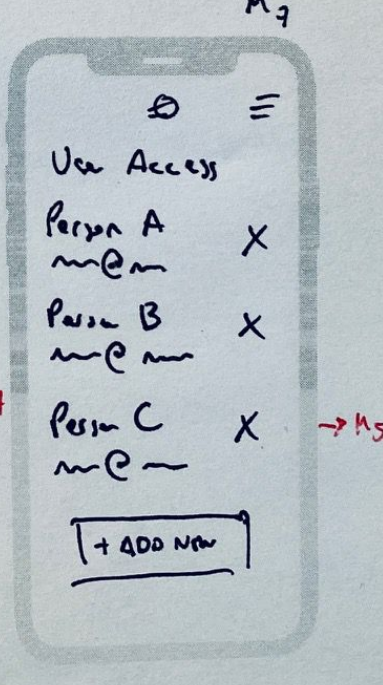 M7
User Access
Person A
X
@
Person B
X
@
Person C
X
→ M5
@
+ ADD NEW